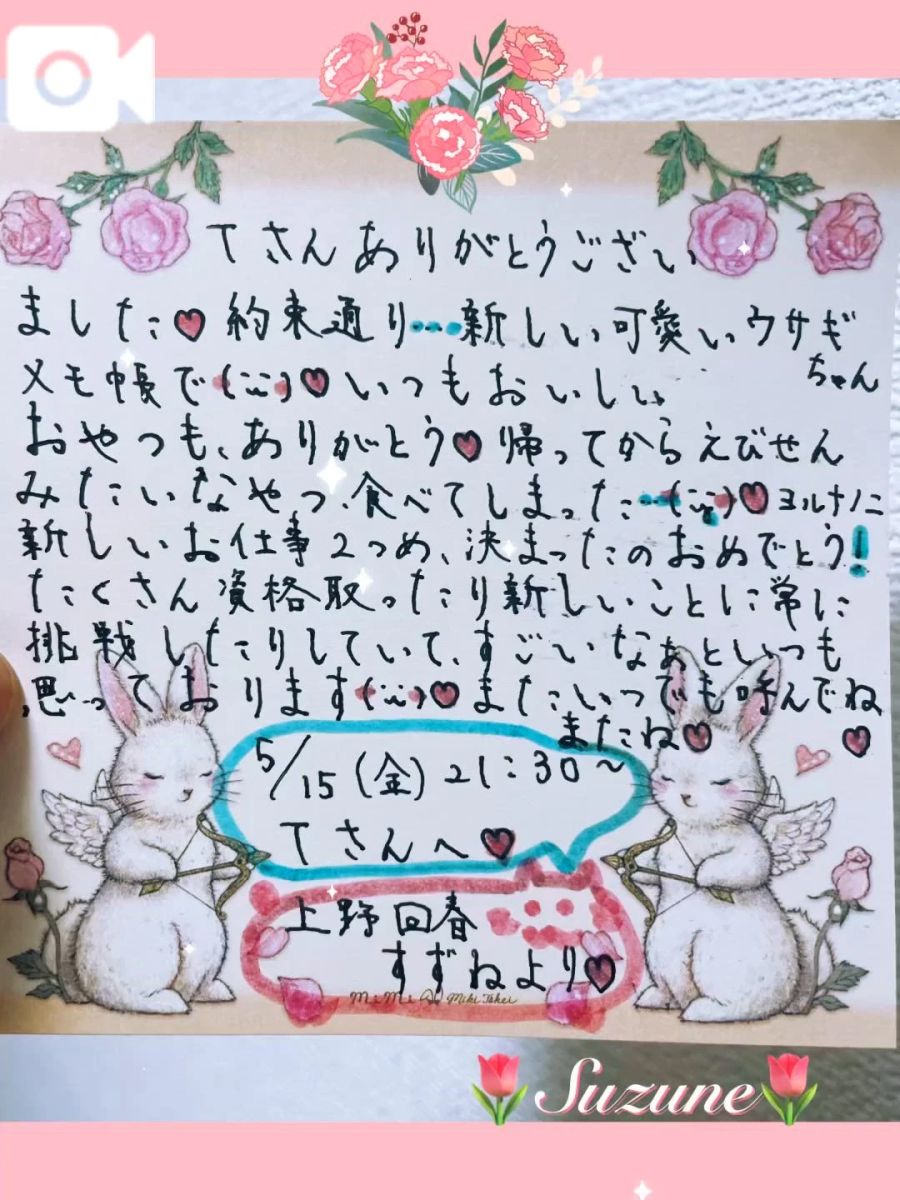 Tさんありがとうござい
ました♥約束通り…新しい可愛いウサギ
ちゃん
メモ帳で(¨)♥いつもおいしい
おやつも、ありがとう♥帰ってからえびせん
みたいなやつ、食べてしまった…(¨)♥ヨルナノニ
新しいお仕事2つめ、決まったのおめでとう!
たくさん資格取ったり新しいことに常に
挑戦したりしていて、すごいなぁといつも
思っております(¨)♥またいつでも呼んでね
またね♥ ♥
5/15(金)21:30~
Tさんへ♥
上野回春
すずねより♥
MiMi Miki Takei
Suzune